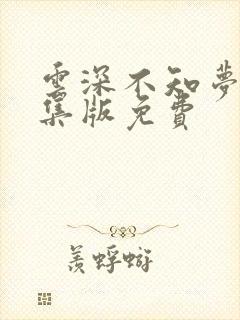 雲深不知夢
集版免費
羨蜉蝣